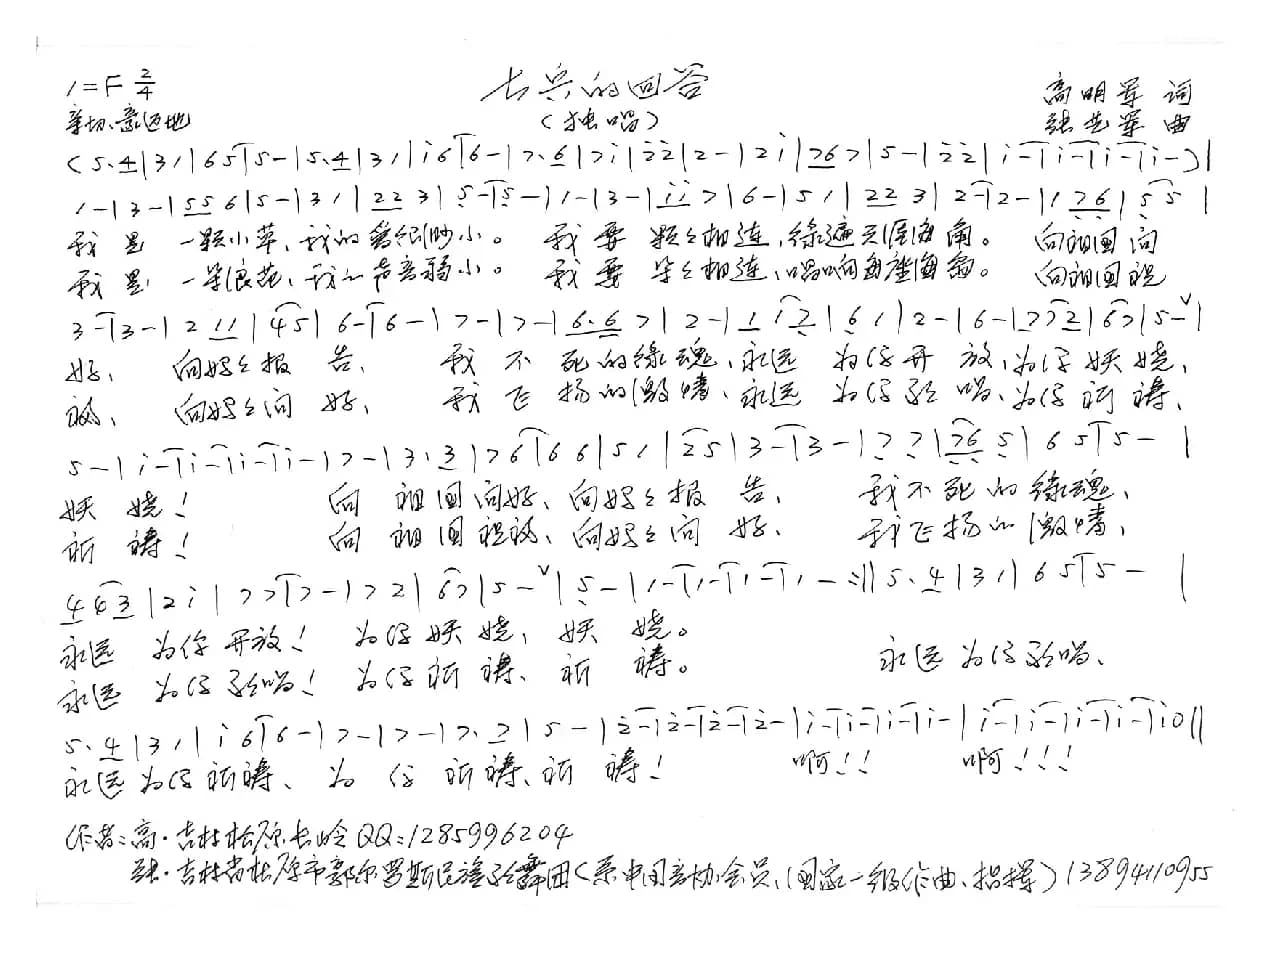 1=F 2/4
士兵的回答
高明军 词
亲切、豪迈地
(独唱)
张先军 曲
(5.4|31|65|5-|5.4|31|i6|6-|7.6|7i|22|2-|2i|767|5-|22|i-|i-|i-|i-)|
1-|3-|556|5-|31|223|5-|5-|1-|3-|ii7|6-|51|223|2-|2-|176|55|
我是 一颗小草、我的 很渺小。 我要 颗颗相连、绿遍天涯海角。 向祖国问
我是 一朵浪花、我的声音弱小。 我要 朵朵相连、唱响每座海岛。 向祖国祝
3-|3-|211|45|6-|6-|7-|7-|6.67|2-|1i7|61|2-|6-|772|67|5-|
好、 向妈妈报告、 我不死的绿魂、永远 为你开放、为你妖娆、
福、 向妈妈问好、 我飞扬的激情、永远 为你歌唱、为你祈祷、
5-|i-|i-|i-|i-|7-|3.3|76|66|51|25|3-|3-|77|765|65|5-|
妖娆! 向祖国问好、向妈妈报告、 我不死的绿魂、
祈祷! 向祖国祝福、向妈妈问好、 我飞扬的激情、
443|2i|77|7-|72|67|5-|5-|1-|1-|1-|1-:||5.4|31|65|5-|
永远 为你开放! 为你妖娆、妖娆。
永远 为你歌唱! 为你祈祷、祈祷。 永远为你歌唱、
5.4|31|i6|6-|7-|7-|7.7|5-|2-|2-|2-|2-|i-|i-|i-|i-|i-|i-|i-|i-|i0||
永远为你祈祷、为你祈祷、祈祷! 啊!! 啊!!!
作者:高·吉林松原长岭QQ:1285996204
张·吉林省松原市郭尔罗斯民族歌舞团(系中国音协会员、国家一级作曲、指挥)13894110955